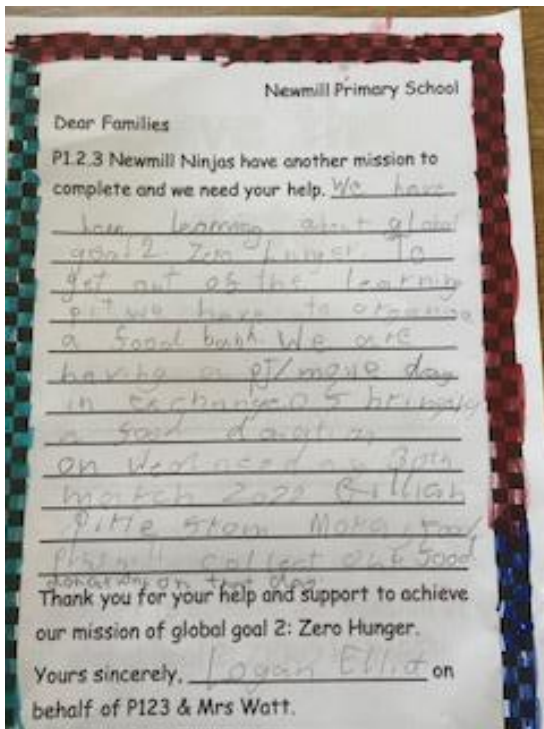 Newmill Primary School
Dear Families
P1.2.3 Newmill Ninjas have another mission to
complete and we need your help. We have
learning about global
goal 2. Zero hunger. To
get out of the learning
pit we have to organise
a food bank. We are
having a pj/movie day
in exchange of bringing
a food donation
on 30th
march 2022
Moray food
collect our food
donations on that day
Thank you for your help and support to achieve
our mission of global goal 2: Zero Hunger.
Yours sincerely, Logan Elliot on
behalf of P123 & Mrs Watt.